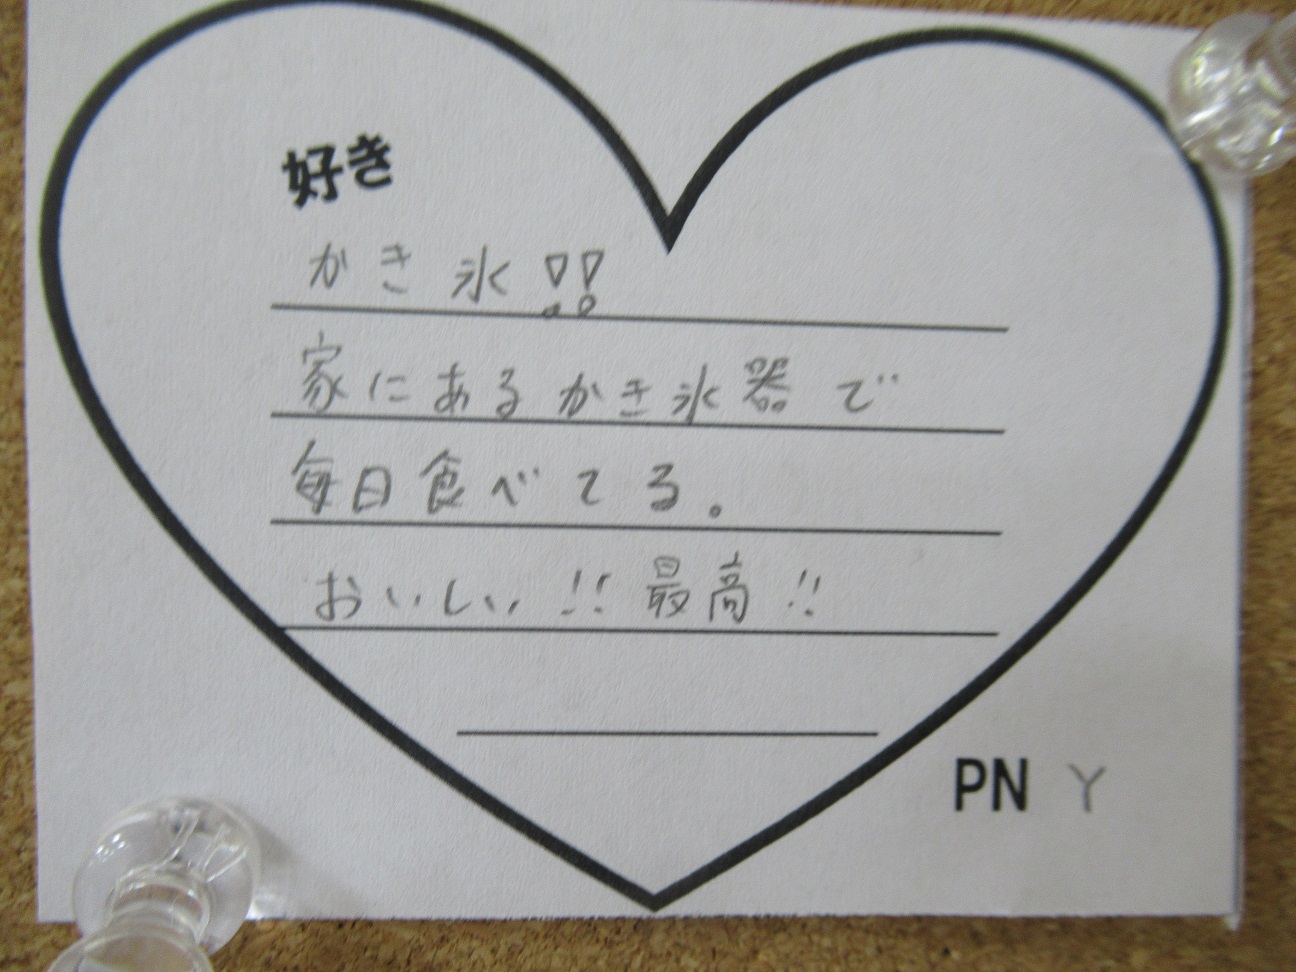 好き
かき氷!!
家にあるかき氷器で
毎日食べてる。
おいしい!!最高!!
PN Y